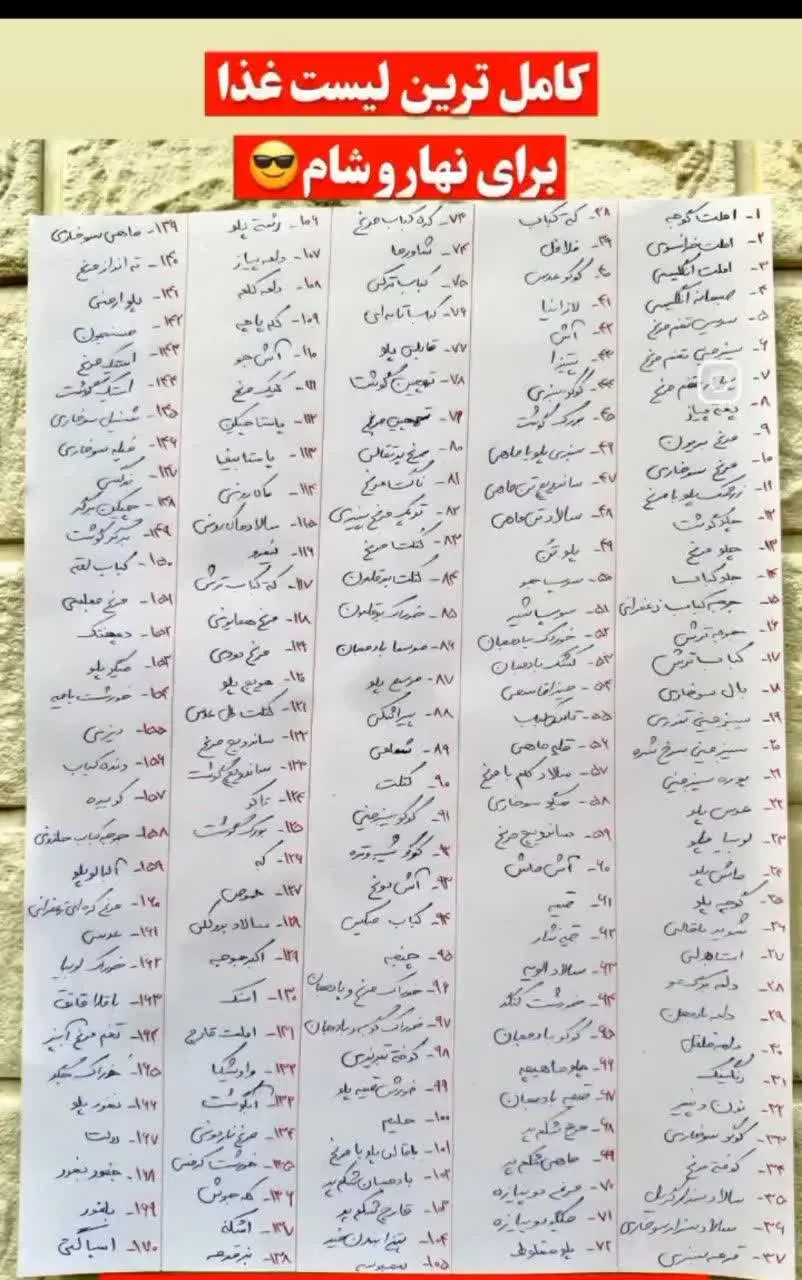 کامل ترین لیست غذا
برای نهار و شام😎
۱- املت گوجه
۲- املت فرانسوی
۳- املت انگلیسی
۴- صبحانه انگلیسی
۵- سوسیس تخم مرغ
۶- سیب زمینی تخم مرغ
۷- تخم مرغ
۸-
۹- مرغ بریون
۱۰- مرغ سوخاری
۱۱- زرشک پلو با مرغ
۱۲- چلو گوشت
۱۳- چلو مرغ
۱۴- چلو کباب
۱۵- جوجه کباب زعفرانی
۱۶- جوجه ترش
۱۷- کباب ترش
۱۸- بال سوخاری
۱۹- سیب زمینی تنوری
۲۰- سیب زمینی سرخ شده
۲۱- پوره سیب زمینی
۲۲- عدس پلو
۲۳- لوبیا پلو
۲۴- ماش پلو
۲۵- گوجه پلو
۲۶- شوید باقالی
۲۷- استامبولی
۲۸- دلمه برگ مو
۲۹- دلمه بادمجان
۳۰- دلمه فلفل
۳۱-
۳۲- نون و پنیر
۳۳- کدو سوخاری
۳۴- کوفته مرغ
۳۵- سالاد سزار گریل
۳۶- سالاد سزار سوخاری
۳۷- قورمه سبزی
۳۸- کته کباب
۳۹- فلافل
۴۰- کوکو عدس
۴۱- لازانیا
۴۲- آش
۴۳- پیتزا
۴۴- کوکو سبزی
۴۵- بورک گوشت
۴۶- سبزی پلو با ماهی
۴۷- ساندویچ تن ماهی
۴۸- سالاد تن ماهی
۴۹- پلو تن
۵۰- سوپ جو
۵۱- سوپ شیر
۵۲- خوراک بادمجان
۵۳- کشک بادمجان
۵۴- میرزا قاسمی
۵۵-
۵۶- قلیه ماهی
۵۷- سالاد کلم با مرغ
۵۸- میگو سوخاری
۵۹- ساندویچ مرغ
۶۰- آش ماش
۶۱- قیمه
۶۲- قیمه نثار
۶۳- سالاد الویه
۶۴- خورشت کنگر
۶۵- کوکو بادمجان
۶۶- چلو ماهیچه
۶۷- قیمه بادمجان
۶۸- مرغ شکم پر
۶۹- ماهی شکم پر
۷۰- مرغ دوپیازه
۷۱- میگو دوپیازه
۷۲- پلو مخلوط
۷۳- کره کباب مرغ
۷۴- شاورما
۷۵- کباب ترکی
۷۶- کباب تابه ای
۷۷- قابلی پلو
۷۸- ته چین گوشت
۷۹- ته چین مرغ
۸۰- مرغ پرتقالی
۸۱- ناگت مرغ
۸۲- مرغ پنیری
۸۳- کتلت مرغ
۸۴- کتلت بوقلمون
۸۵- خوراک بوقلمون
۸۶- بادمجان
۸۷- مرصع پلو
۸۸- پیراشکی
۸۹- شامی
۹۰- کتلت
۹۱- کوکو سیب زمینی
۹۲- کوکو شیبت و تره
۹۳- آش دوغ
۹۴- کباب چنگین
۹۵- چنجه
۹۶- خوراک مرغ و بادمجان
۹۷- خوراک گوجه و بادمجان
۹۸- کوفته تبریزی
۹۹- خورش قیمه پلو
۱۰۰- حلیم
۱۰۱- باقالی پلو با مرغ
۱۰۲- بادمجان شکم پر
۱۰۳- قارچ شکم پر
۱۰۴-
۱۰۵- سمبوسه
۱۰۶- رشته پلو
۱۰۷- دلمه پیاز
۱۰۸- دلمه کلم
۱۰۹- کله پاچه
۱۱۰- آش جو
۱۱۱- مرغ
۱۱۲- پاستا چیکن
۱۱۳- پاستا
۱۱۴- ماکارونی
۱۱۵- سالاد ماکارونی
۱۱۶- نیمرو
۱۱۷- کته کباب ترش
۱۱۸- مرغ همایونی
۱۱۹- مرغ دودی
۱۲۰- هویج پلو
۱۲۱- کتلت گل عدس
۱۲۲- ساندویچ مرغ
۱۲۳- ساندویچ گوشت
۱۲۴- تاکو
۱۲۵- بورک گوشت
۱۲۶- کبه
۱۲۷- حموص
۱۲۸- سالاد بروکلی
۱۲۹- اکبر جوجه
۱۳۰- اسنک
۱۳۱- املت قارچ
۱۳۲- واویشکا
۱۳۳- آبگوشت
۱۳۴- مرغ ناردونی
۱۳۵- خورشت کرفس
۱۳۶- کله جوش
۱۳۷- اشکنه
۱۳۸-
۱۳۹- ماهی سوخاری
۱۴۰- ته انداز مرغ
۱۴۱- پلو ارمنی
۱۴۲-
۱۴۳- استیک مرغ
۱۴۴- استیک گوشت
۱۴۵- شنیسل سوخاری
۱۴۶- فیله سوخاری
۱۴۷- نرگسی
۱۴۸- چیکن برگر
۱۴۹- برگر گوشت
۱۵۰- کباب لقمه
۱۵۱- مرغ مجلسی
۱۵۲- دمپختک
۱۵۳- میگو پلو
۱۵۴- خورشت بامیه
۱۵۵- دیزی
۱۵۶- دنده کباب
۱۵۷- کوبیده
۱۵۸- جوجه کباب حلزونی
۱۵۹- آلبالو پلو
۱۶۰- مرغ کره ای زعفرانی
۱۶۱- عدسی
۱۶۲- خوراک لوبیا
۱۶۳- باقلا قاتق
۱۶۴- تخم مرغ آبپز
۱۶۵- خوراک میگو
۱۶۶- نخود پلو
۱۶۷-
۱۶۸- جغور بغور
۱۶۹-
۱۷۰- اسپاگتی